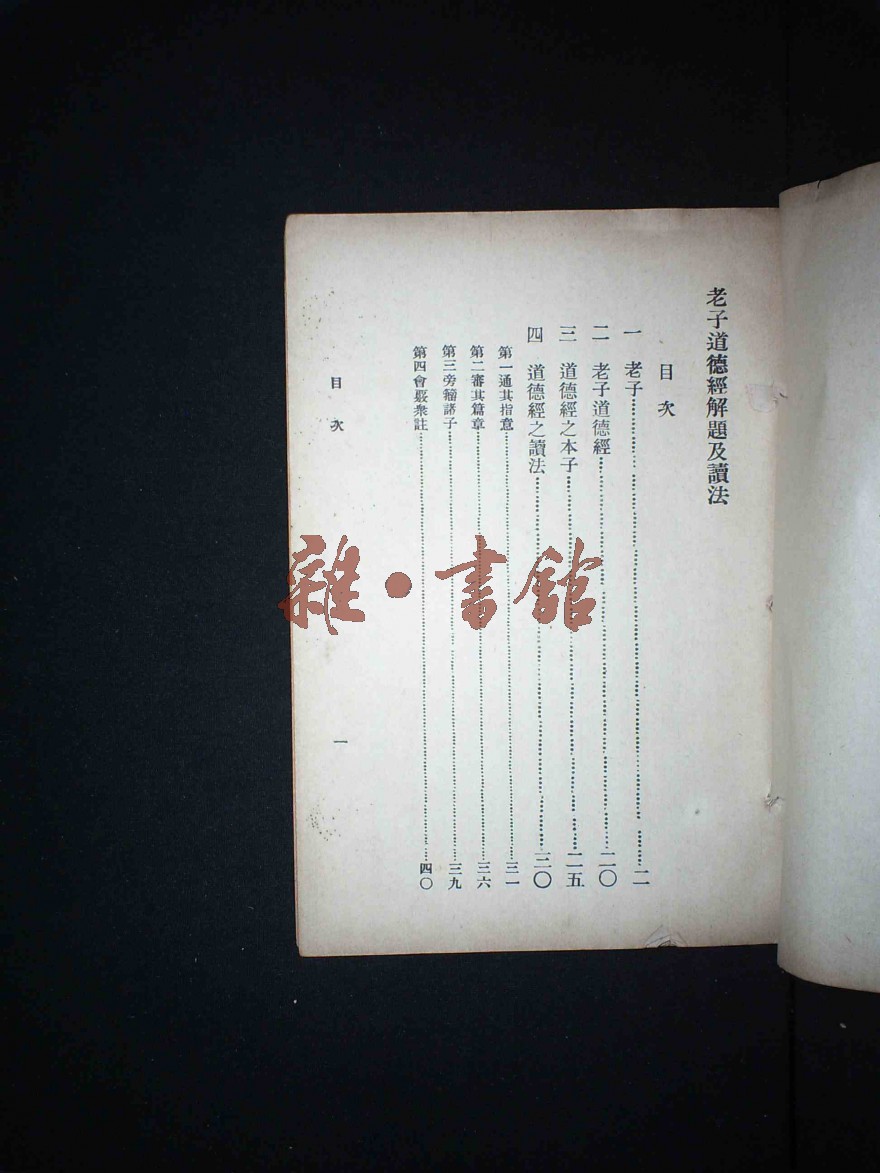 老子道德經解題及讀法
目次
一 老子……二
二 老子道德經……二〇
三 道德經之本子……二五
四 道德經之讀法……三〇
第一通其指意……三一
第二審其篇章……三六
第三旁籀諸子……三九
第四會覈衆註……四〇
目次
一
雜·書館